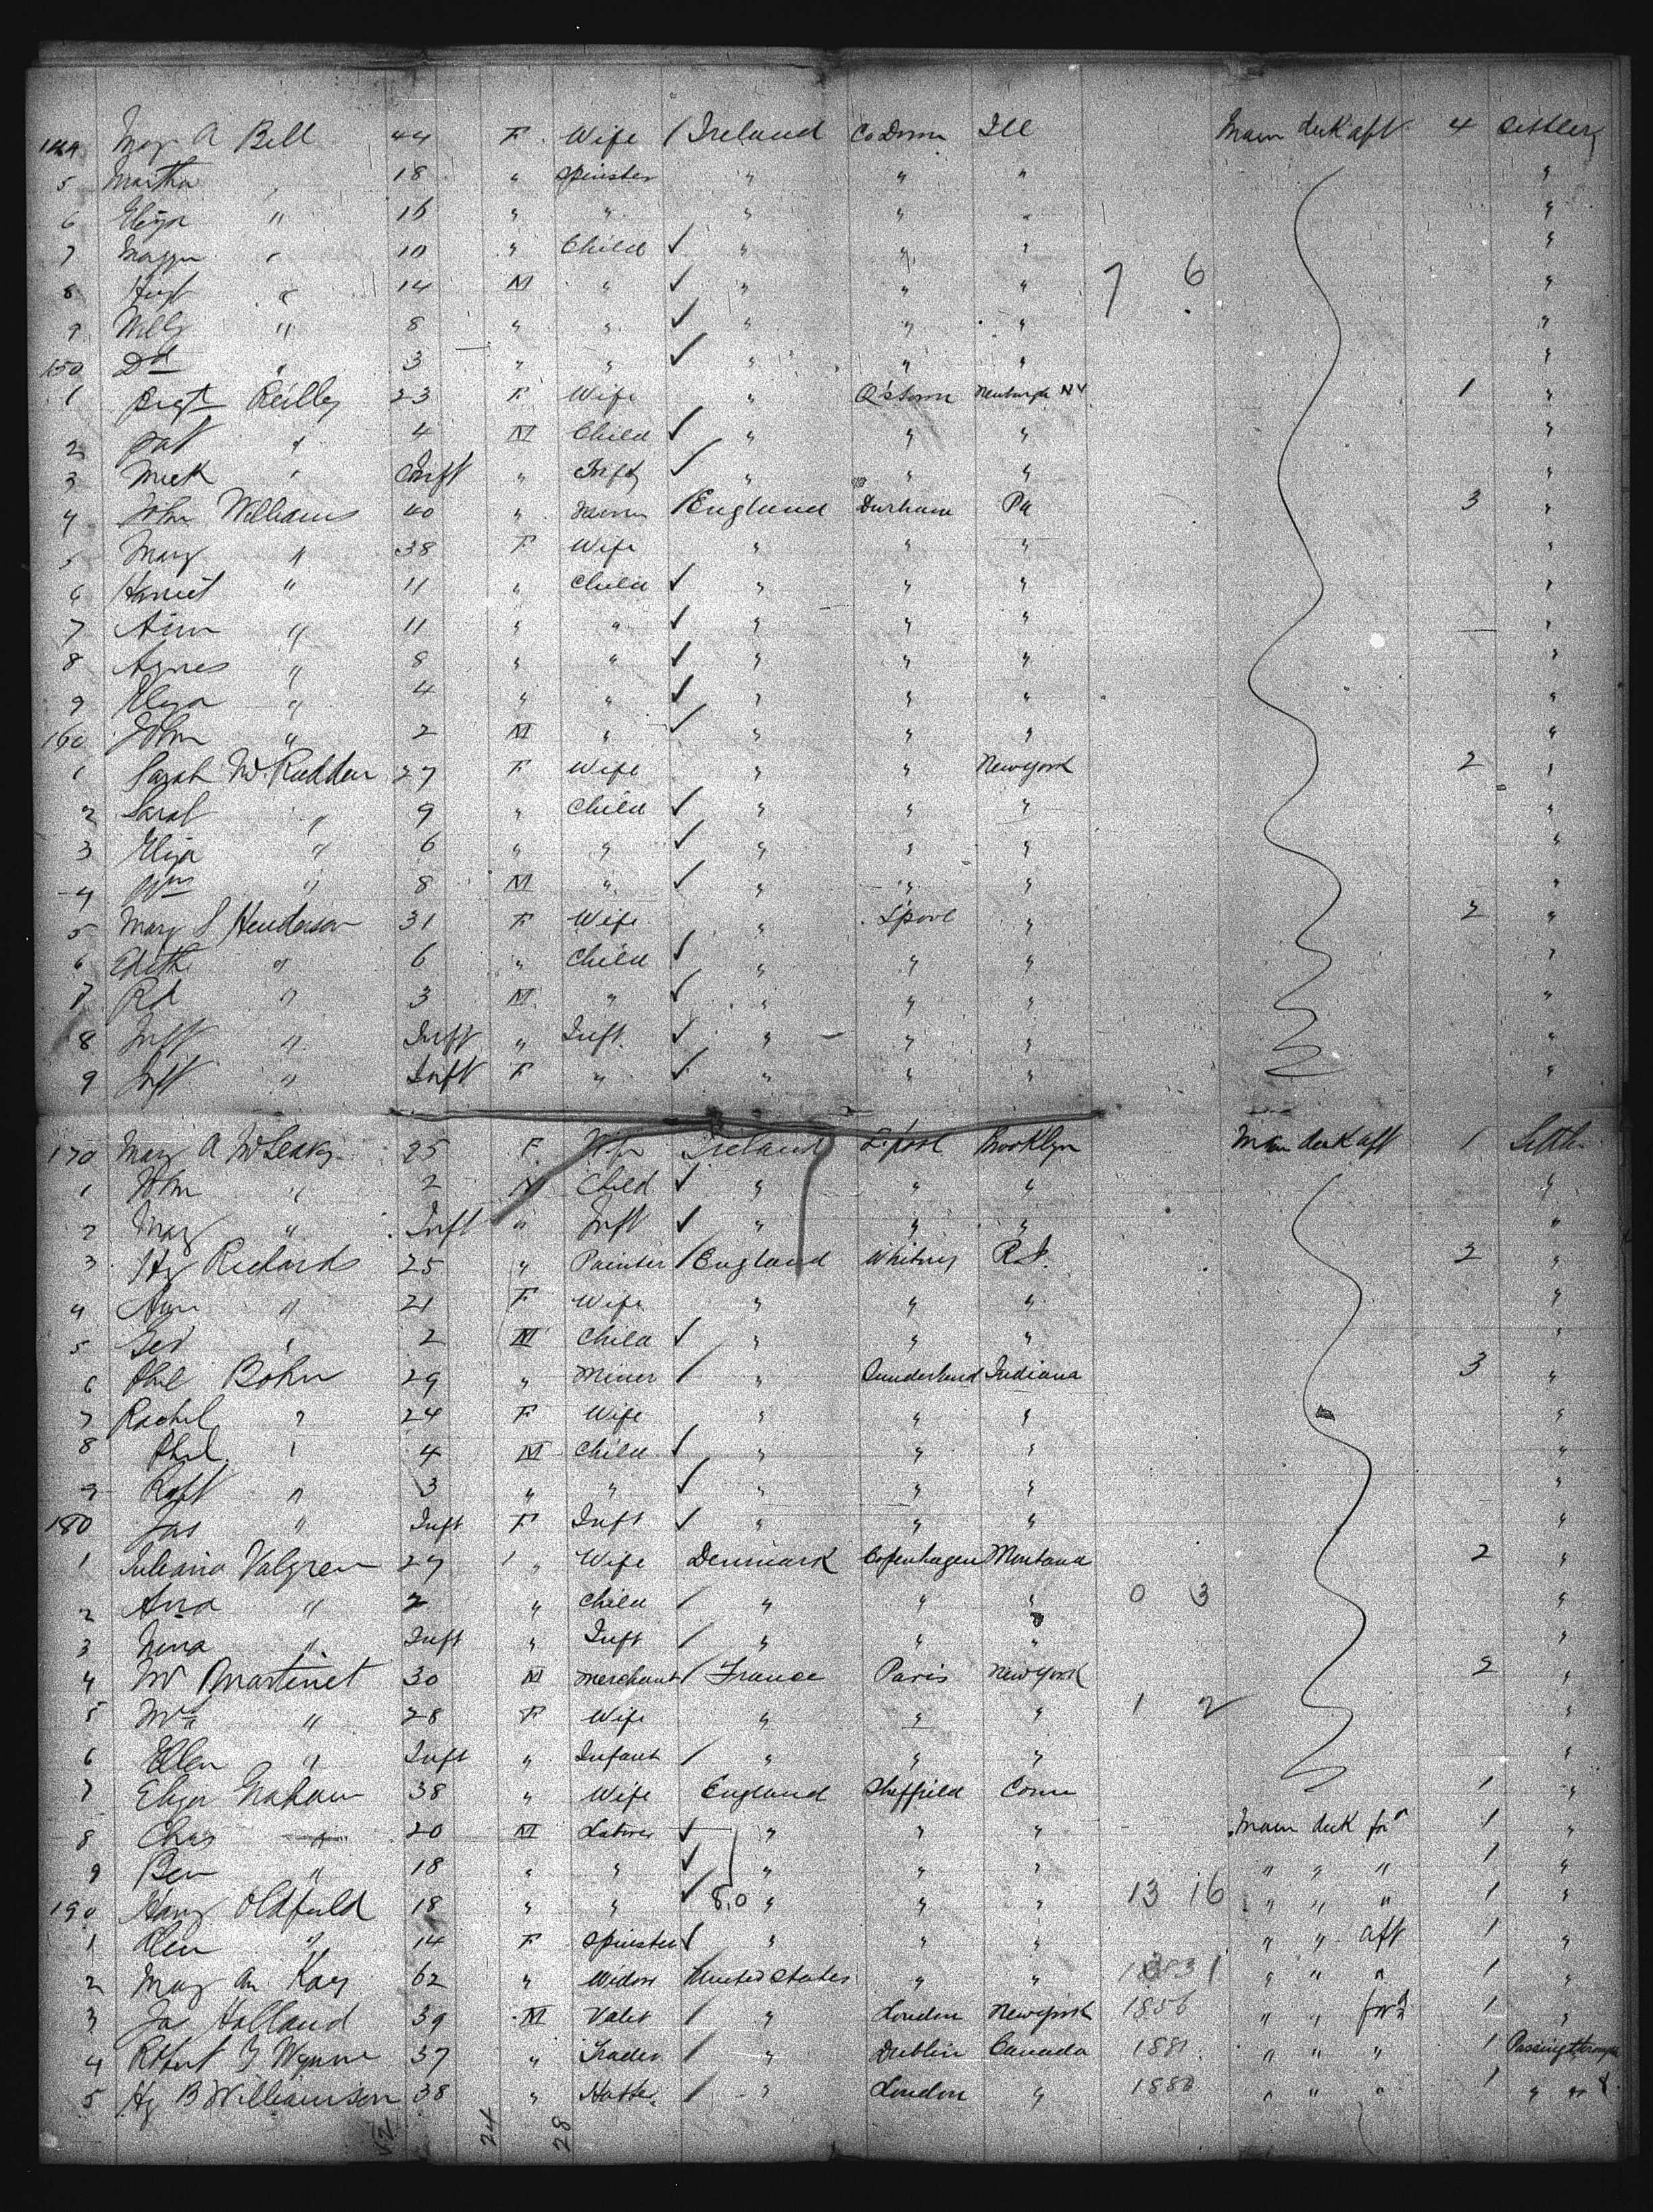 144 Mary A Bell 44 F Wife / Ireland Co Down Ill Main deck aft 4 Settlers
5 Martha " 18 " Spinster " " " "
6 Eliza " 16 " " " " " "
7 Maggie " 10 " Child ✓ " " " "
8 " 14 M " ✓ " " " 7 6 "
9 Willy " 8 " " ✓ " " " "
150 Dd " 3 " " ✓ " " " "
1 Reilly 23 F Wife " Newburgh NY 1 "
2 Pat " 4 M Child ✓ " " " "
3 Mick " Inft " Inft ✓ " " " "
4 John Williams 40 " / England Durham Pa 3 "
5 Mary " 38 F Wife " " " "
6 Harriet " 11 " Child ✓ " " " "
7 Ann " 11 " " ✓ " " " "
8 Agnes " 8 " " ✓ " " " "
9 Eliza " 4 " " ✓ " " " "
160 John " 2 M " ✓ " " " "
1 Sarah 27 F Wife " " New York 2 "
2 Sarah " 9 " Child ✓ " " " "
3 Eliza " 6 " " ✓ " " " "
4 Wm " 8 M " ✓ " " " "
5 Mary S Henderson 31 F Wife " L'pool " 2 "
6 Edith " 6 " Child ✓ " " " "
7 Rd " 3 M " ✓ " " " "
8 Inft " Inft " Inft ✓ " " " "
9 Inft " Inft F " ✓ " " " "
170 Mary A 25 F Wife Ireland L'pool Brooklyn Main deck aft 1 Settler
1 John " 2 M Child ✓ " " " "
2 Mary " Inft " Inft ✓ " " " "
3 Hy Richards 25 " Painter / England Whitby R.I. 2 "
4 Ann " 21 F Wife " " " "
5 Geo " 2 M Child ✓ " " " "
6 Phil Bohn 29 " Miner / " Sunderland Indiana 3 "
7 Rachel " 24 F Wife " " " "
8 Phil " 4 M Child ✓ " " " "
9 Robt " 3 " " ✓ " " " "
180 Jas " Inft F Inft ✓ " " " "
1 Juliana Valgren 27 / " Wife Denmark Copenhagen Montana 2 "
2 Ana " 2 " Child / " " " 0 3 "
3 Nena " Inft " Inft / " " " "
4 Mr Martinet 30 M Merchant / France Paris New York 2 "
5 Mrs " 28 F Wife " " " 1 2 "
6 Ellen " Inft " Infant / " " " "
7 Eliza Graham 38 " Wife England Sheffield Conn 1 "
8 Chas " 20 M Laborer ✓ " " " Main deck for 1 "
9 Ben " 18 " " ✓ " " " " " " 1 "
190 Harry Oldfield 18 " " ✓ 8.0 " " " 13 16 " " " 1 "
1 " 14 F Spinster / " " " " " aft 1 "
2 Mary An Kay 62 " Widow United States " " " " " 1 "
3 Ja Holland 39 M Valet / " London New York 1856 " " for 1 "
4 Robert G Wynne 37 " Trader / " Dublin Canada 1881 " " " 1 Passing through
5 Hy B Williamson 38 " / " London " 1880 " " " 1 " "
24 28